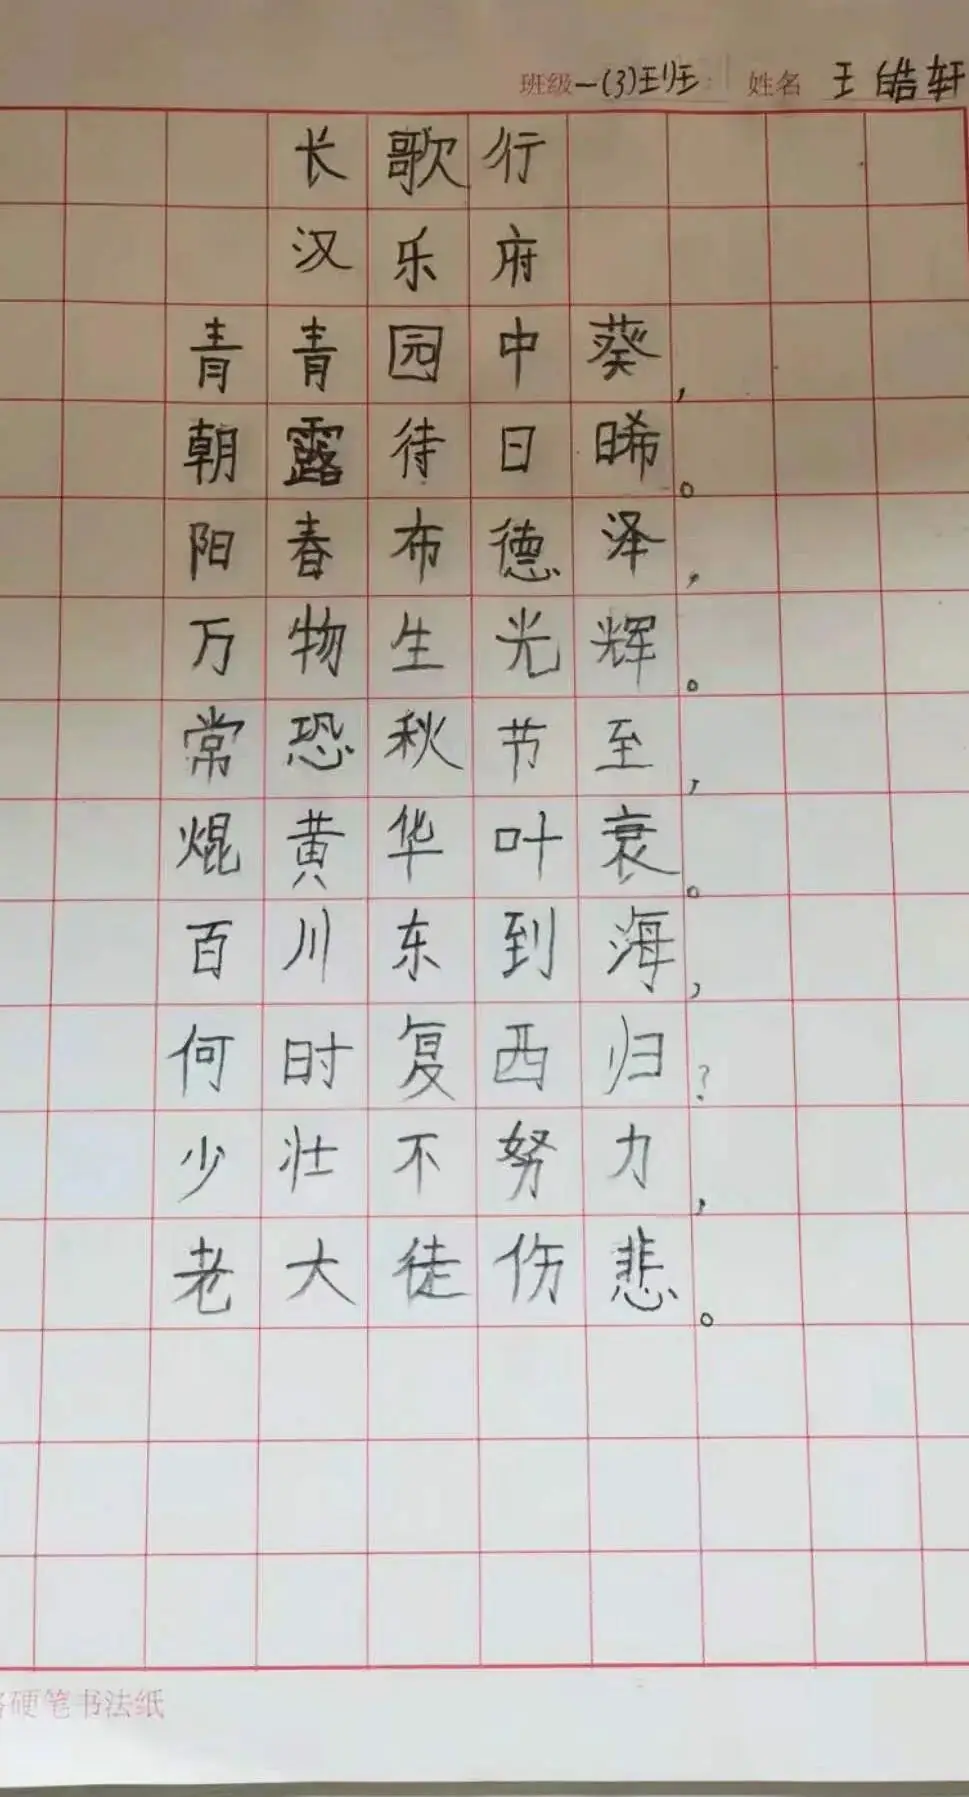 班级一(3)班 姓名 王皓轩
长歌行
汉乐府
青青园中葵，
朝露待日晞。
阳春布德泽，
万物生光辉。
常恐秋节至，
焜黄华叶衰。
百川东到海，
何时复西归？
少壮不努力，
老大徒伤悲。
硬笔书法纸